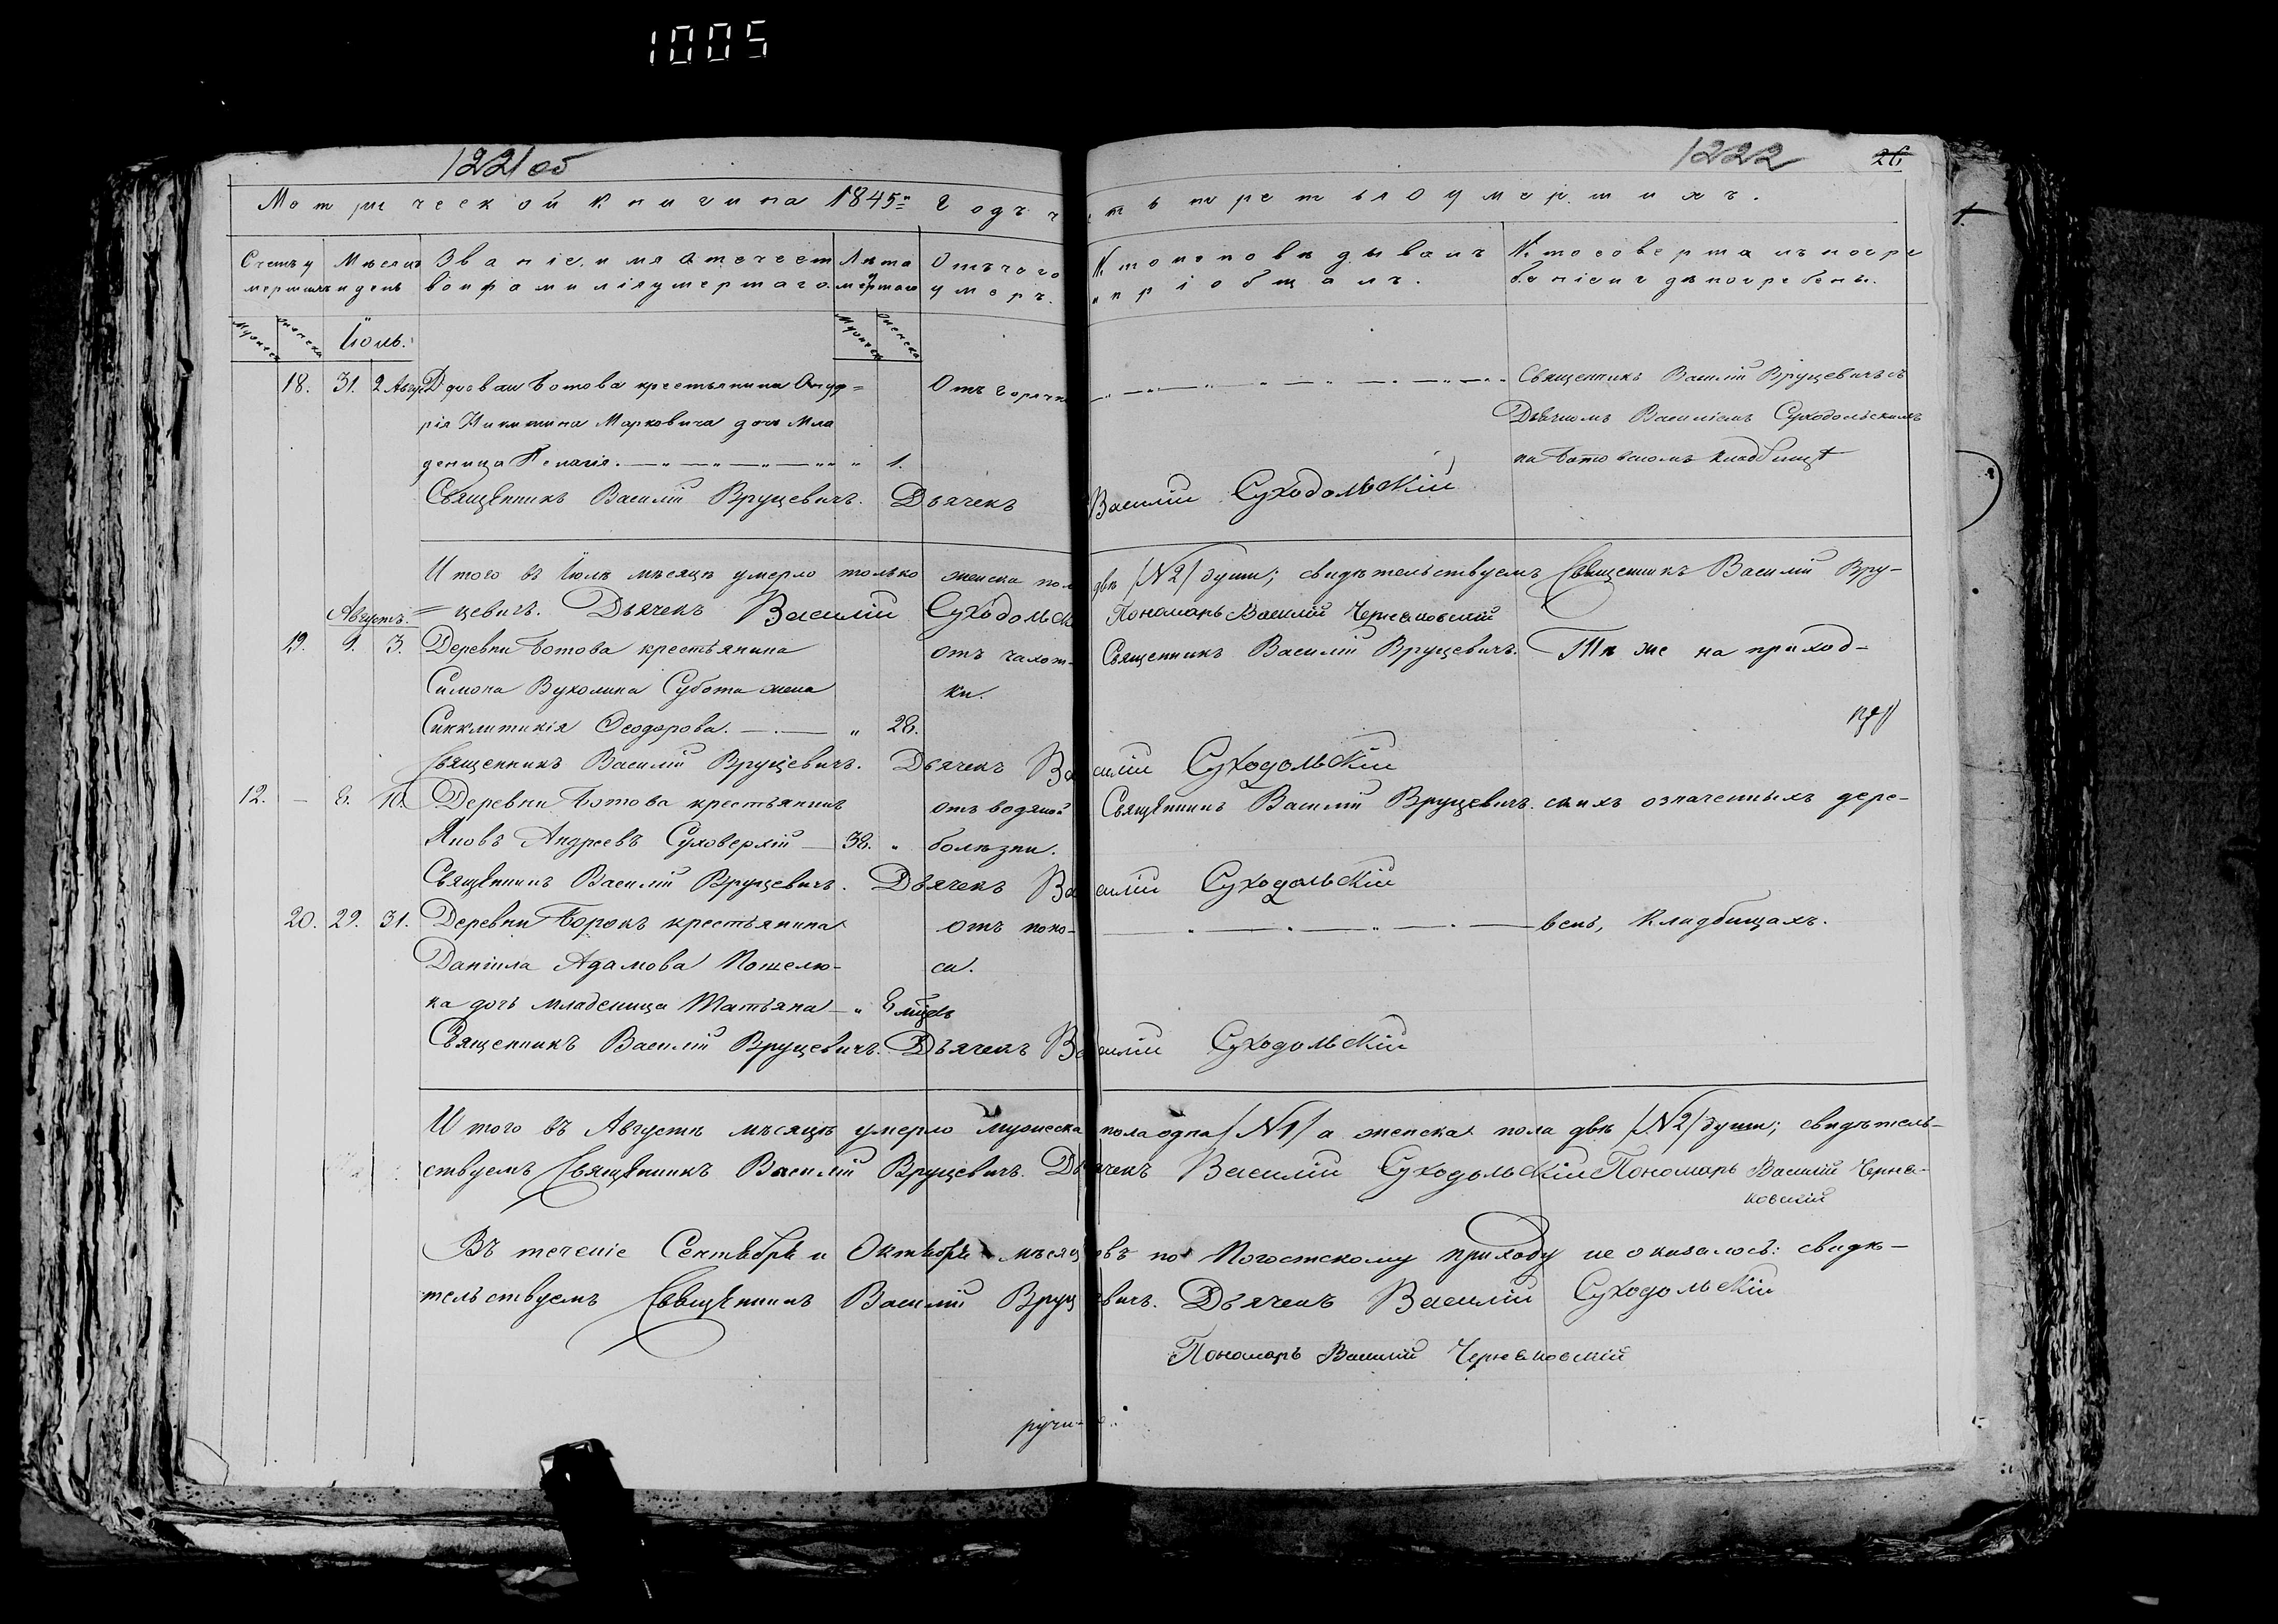 1005
1221 об
1222
26
Метрической книги на 1845й Годъ часть третья о умершихъ.
Счетъ умершихъ
Мѣсяцъ и день
Званіе, имя отечество и фамилія умершаго.
Лѣта умершаго
Отъ чего умеръ.
Кто исповѣдывалъ и пріобщалъ.
Кто совершалъ погребеніе и гдѣ погребены.
Мужеска Женска
Іюль.
Мужеска Женска
18. 31. 2 Авгу. Деревни Ботова крестьянина
Отъ горячк
Священникъ Василій Вруцевичъ съ
Никитина Марковича дочь мла
Дьячкомъ Василіемъ Суходольскимъ
деница Пелагія. „ 1.
на Ботовскомъ кладбищѣ
Священникъ Василій Вруцевичъ. Дьячекъ Василій Суходольскій
Итого въ Іюлѣ мѣсяцѣ умерло только женска пол двѣ /№2/ души; свидѣтельствуемъ Священникъ Василій Вру-
цевичъ. Дьячекъ Василій Суходольск Пономарь Василій Черняковскій
Августъ.
19. 1. 3. Деревни Ботова крестьянина отъ чахот- Священникъ Василій Вруцевичъ. Тѣ же на приход-
Симона Вуколина Субота жена ки.
Сикклитикія Ѳеодорова. „ 28.
Священникъ Василій Вруцевичъ. Дьячекъ Василій Суходольскій
12. — 8. 10. Деревни Ботова крестьянинъ отъ водяной Священникъ Василій Вруцевичъ. скихъ означенныхъ дере-
Яковъ Андреевъ Суховерхій 38. „ болѣзни.
Священникъ Василій Вруцевичъ. Дьячекъ Василій Суходольскій
20. 29. 31. Деревни Борокъ крестьянина отъ поно- вень, кладбищахъ.
Даніила Адамова Кошелю- са.
ка дочь младеница Татьяна „ 8 мцѣвъ
Священникъ Василій Вруцевичъ. Дьячекъ Василій Суходольскій
Итого въ Августѣ мѣсяцѣ умерло мужеска пола одна /№1/ а женска пола двѣ /№2/ души; свидѣтель-
ствуемъ Священникъ Василій Вруцевичъ. Дьячекъ Василій Суходольскій Пономарь Василій Черня-
ковскій
Въ теченіе Сентября и Октября мѣсяцовъ по Погостскому приходу не оказалось: свидѣ-
тельствуемъ Священникъ Василій Вруцевичъ. Дьячекъ Василій Суходольскій
Пономарь Василій Черняковскій